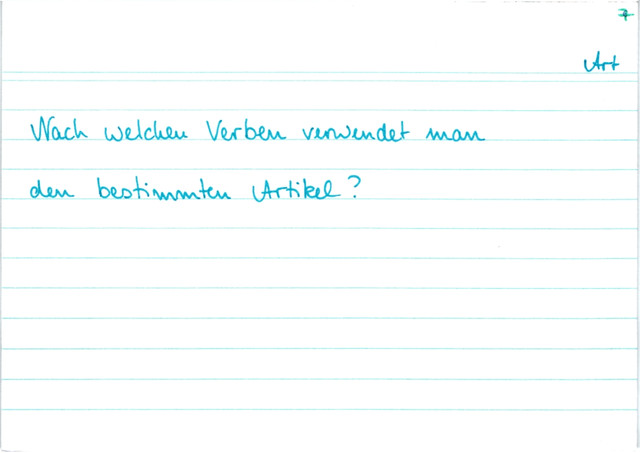 7
Art
Nach welchen Verben verwendet man
den bestimmten Artikel?